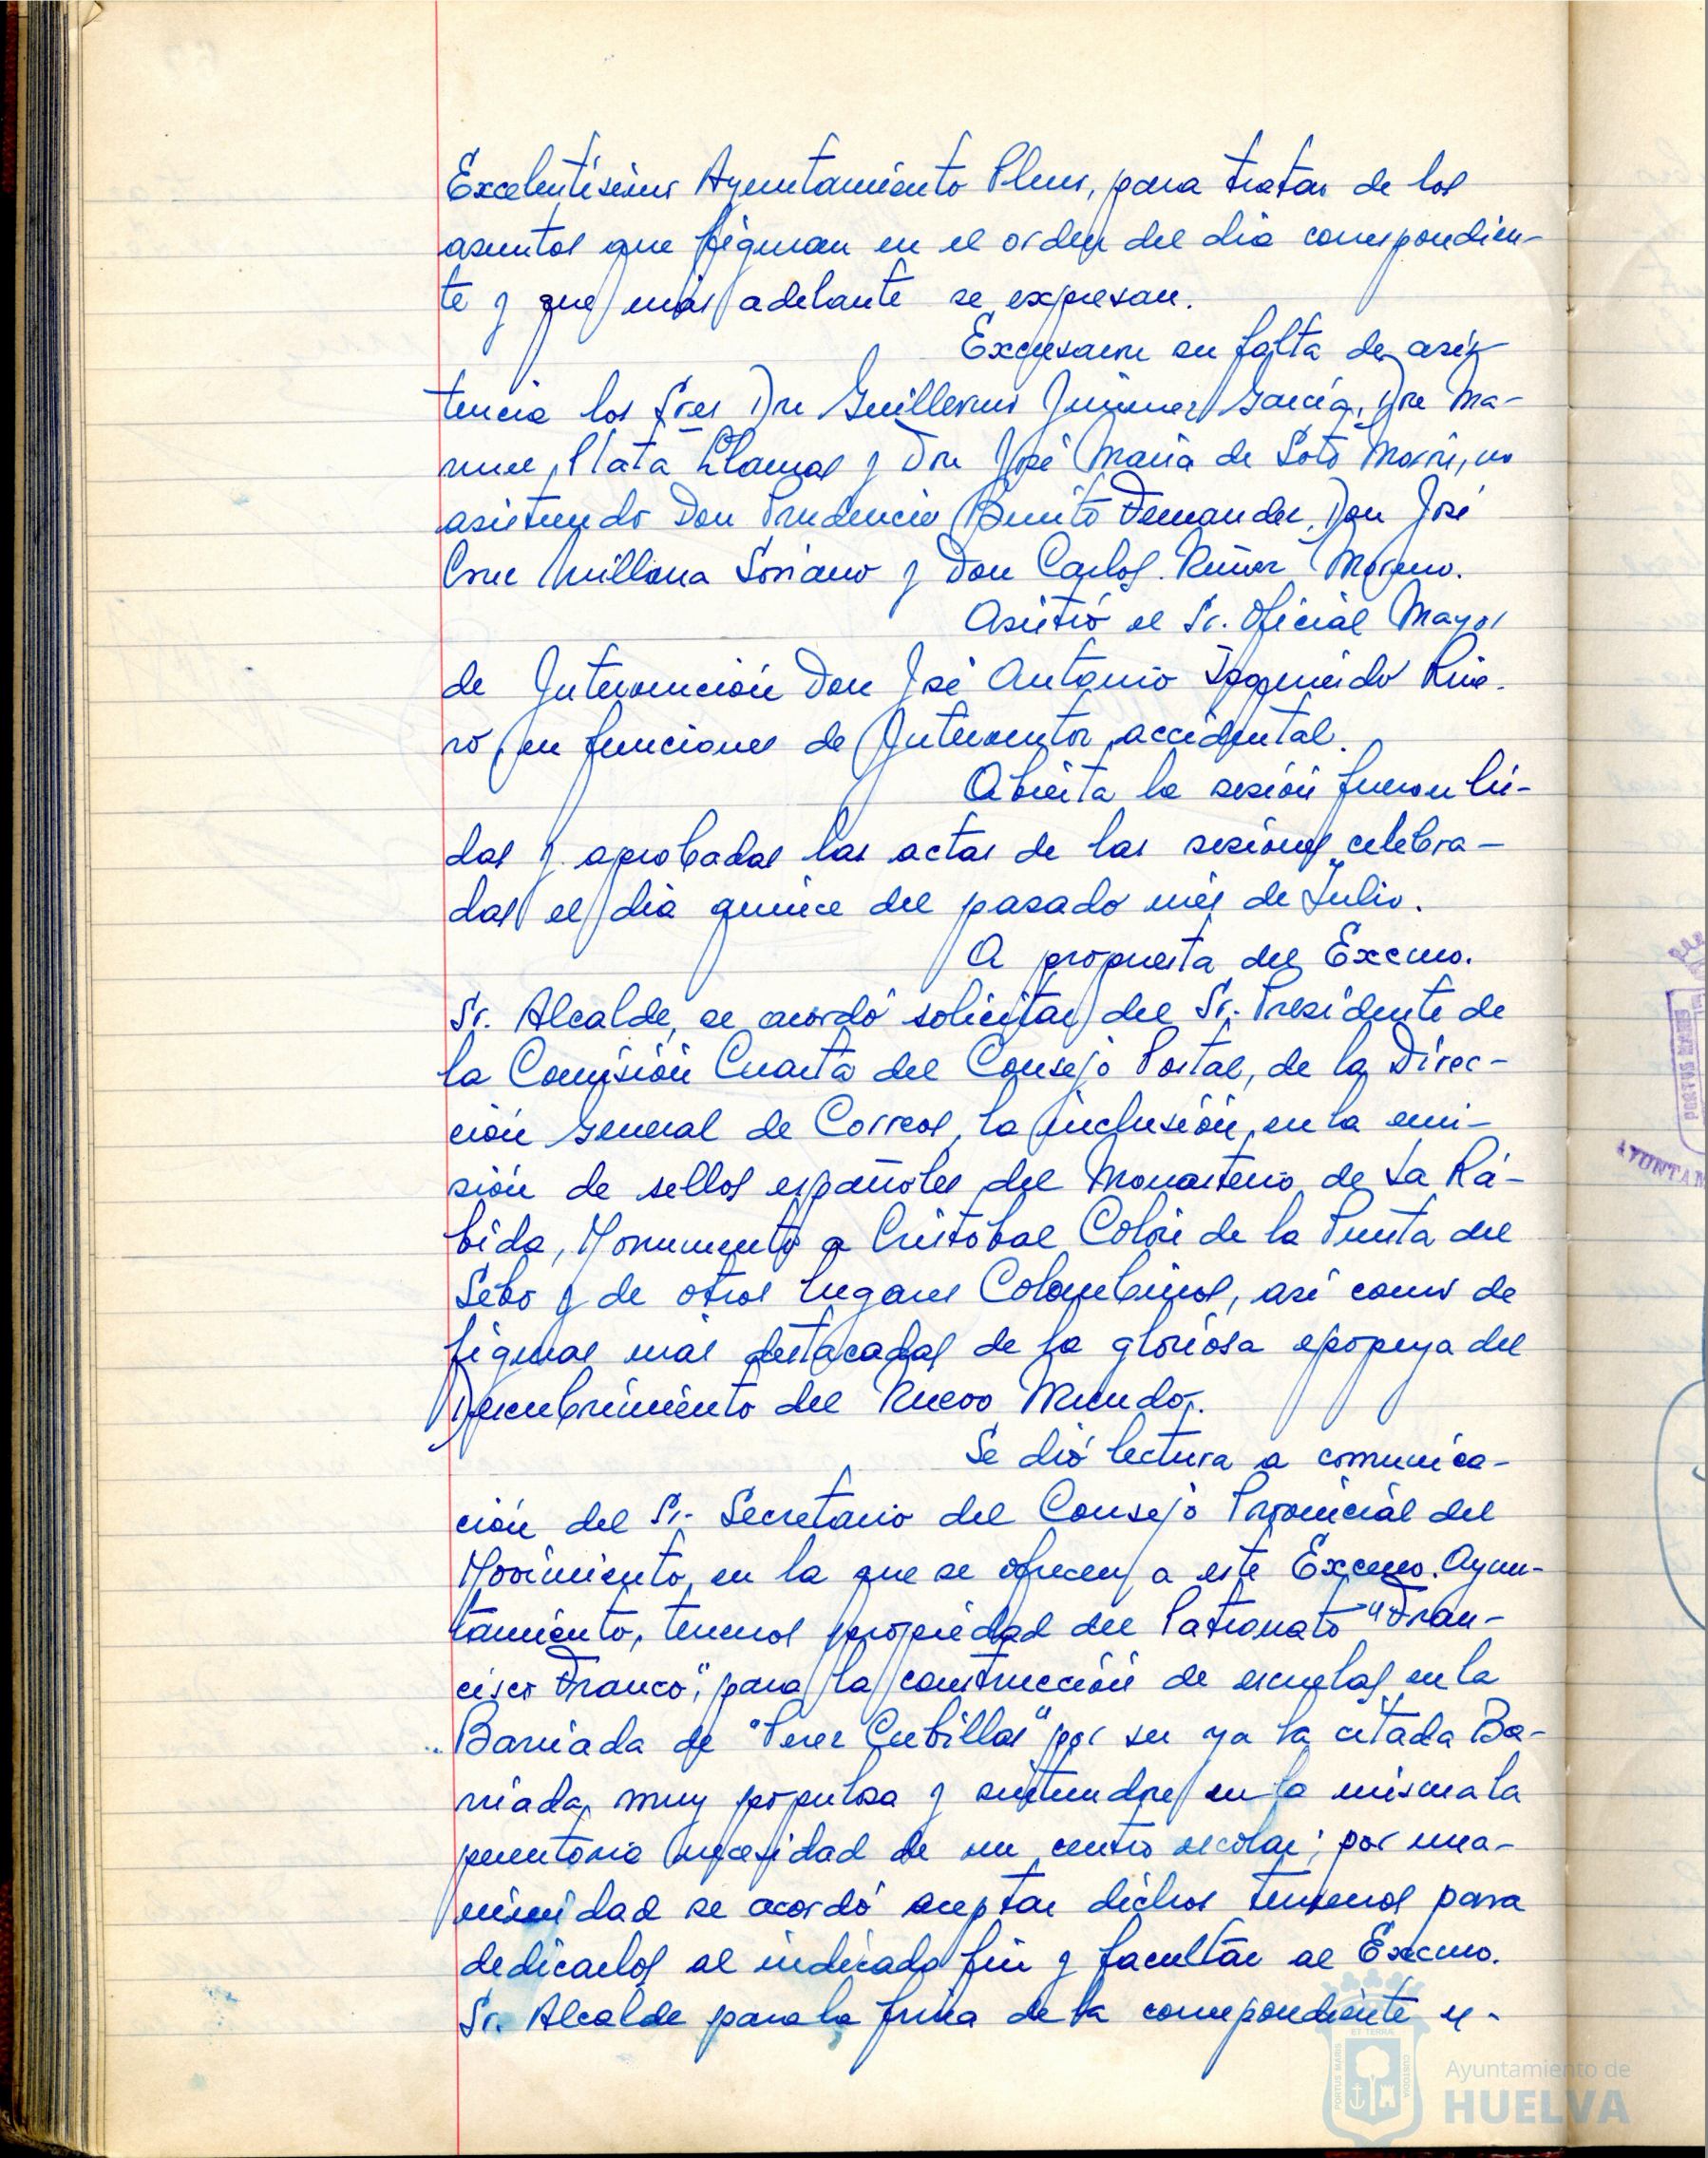 Excelentísimo Ayuntamiento Pleno, para tratar de los
asuntos que figuran en el orden del día correspondien-
te y que más adelante se expresan.
Excusaron su falta de asis-
tencia los Sres Don Guillermo Jimenez García, Don Ma-
nuel Plata Llamas y Don José María de Soto Morón, no
asistiendo Don Prudencio Benito Fernandez, Don José
Cruz Millana Soriano y Don Carlos Núñez Moreno.
Asistió el Sr. Oficial Mayor
de Intervención Don José Antonio Izquierdo
ro, en funciones de Interventor accidental.
Abierta la sesión fueron leí-
das y aprobadas las actas de las sesiones celebra-
das el día quince del pasado mes de Julio.
A propuesta del Excmo.
Sr. Alcalde, se acordó solicitar del Sr. Presidente de
la Comisión Cuarta del Consejo Postal, de la Direc-
ción General de Correos, la inclusión, en la emi-
sión de sellos españoles del Monasterio de La Rá-
bida, Monumento a Cristobal Colón de la Punta del
Sebo y de otros lugares Colombinos, así como de
figuras más destacadas de la gloriosa epopeya del
Descubrimiento del Nuevo Mundo.
Se dió lectura a comunica-
ción del Sr. Secretario del Consejo Provincial del
Movimiento, en la que se ofrecen a este Excmo. Ayun-
tamiento, terrenos propiedad del Patronato "Fran-
cisco Franco", para la construcción de escuelas en la
Barriada de "Perez Cubillas" por ser ya la citada Ba-
rriada, muy populosa y sintiendose en la misma la
perentoria necesidad de un centro escolar; por una-
nimidad se acordó aceptar dichos terrenos para
dedicarlos al indicado fin y facultar al Excmo.
Sr. Alcalde para la firma de la correspondiente es-
PORTUS MARIS
AYUNTAM
ET TERRAE
PORTUS MARIS
CUSTODIA
Ayuntamiento de
HUELVA